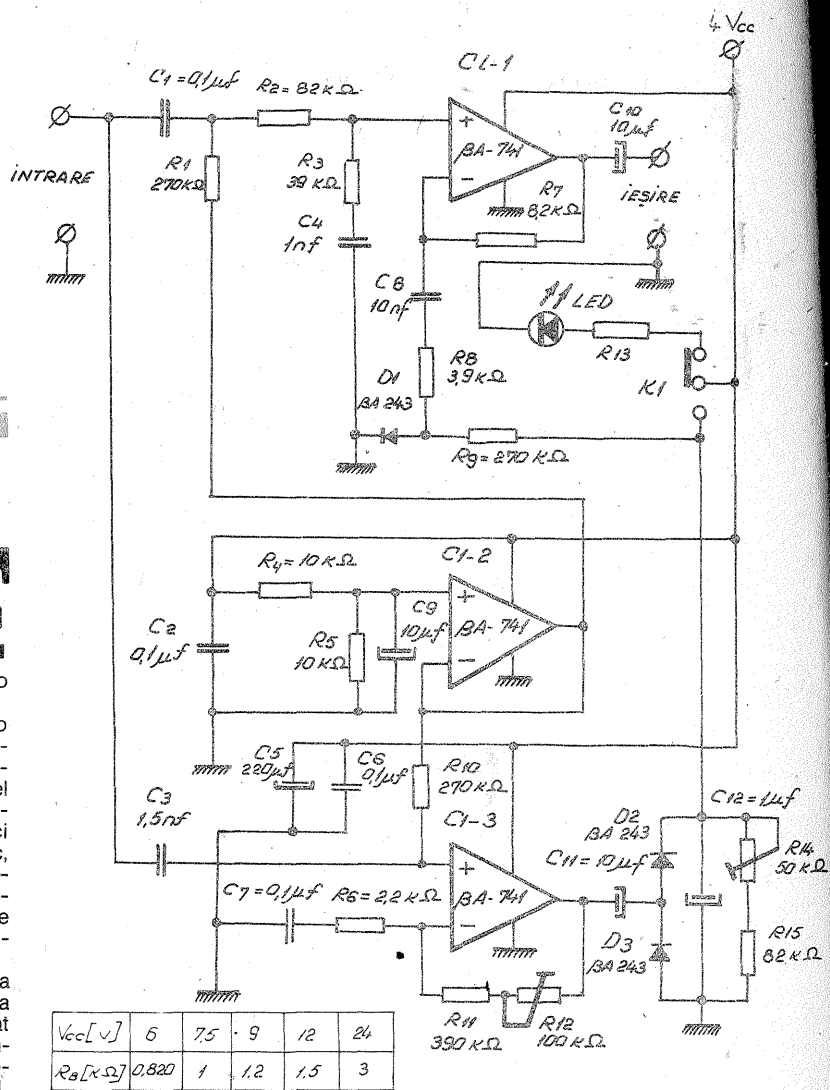 + Vcc
C1 = 0,1μf
R2 = 82KΩ
CI-1
C10
10μf
INTRARE
R1
270KΩ
R3
39KΩ
+
βA-741
-
R7
8,2KΩ
IEŞIRE
C4
1nf
C8
10nf
LED
R13
K1
D1
βA 243
R8
3,9KΩ
R9 = 270 KΩ
R4 = 10KΩ
CI-2
C2
0,1μf
R5
10KΩ
C9
10μf
+
βA-741
-
C5
220μf
C6
0,1μf
R10
270KΩ
C3
1,5nf
CI-3
D2
βA 243
C12 = 1μf
C11 = 10μf
R14
50KΩ
C7 = 0,1μf
R6 = 2,2KΩ
+
βA-741
-
D3
βA 243
R15
82KΩ
R11
390KΩ
R12
100KΩ
Vcc[V] 6 7,5 9 12 24
R8[KΩ] 0,820 1 1,2 1,5 3